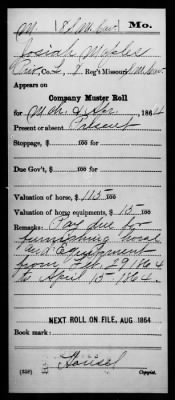 M 8 S.M. Cav. Mo.
Josiah Maples
Pvt., Co. L, 8 Reg't Missouri S.M. Cav.
Appears on
Company Muster Roll
for Mch & Apr., 1864
Present or absent Present
Stoppage, $ 100 for
Due Gov't, $ 100 for
Valuation of horse, $ 115 100
Valuation of horse equipments, $ 15 100
Remarks: Pay due for
furnishing horse
and Equipments
from Feb. 29 1864
to April 15 1864.
NEXT ROLL ON FILE, AUG. 1864
Book mark:
(359) Copyist.